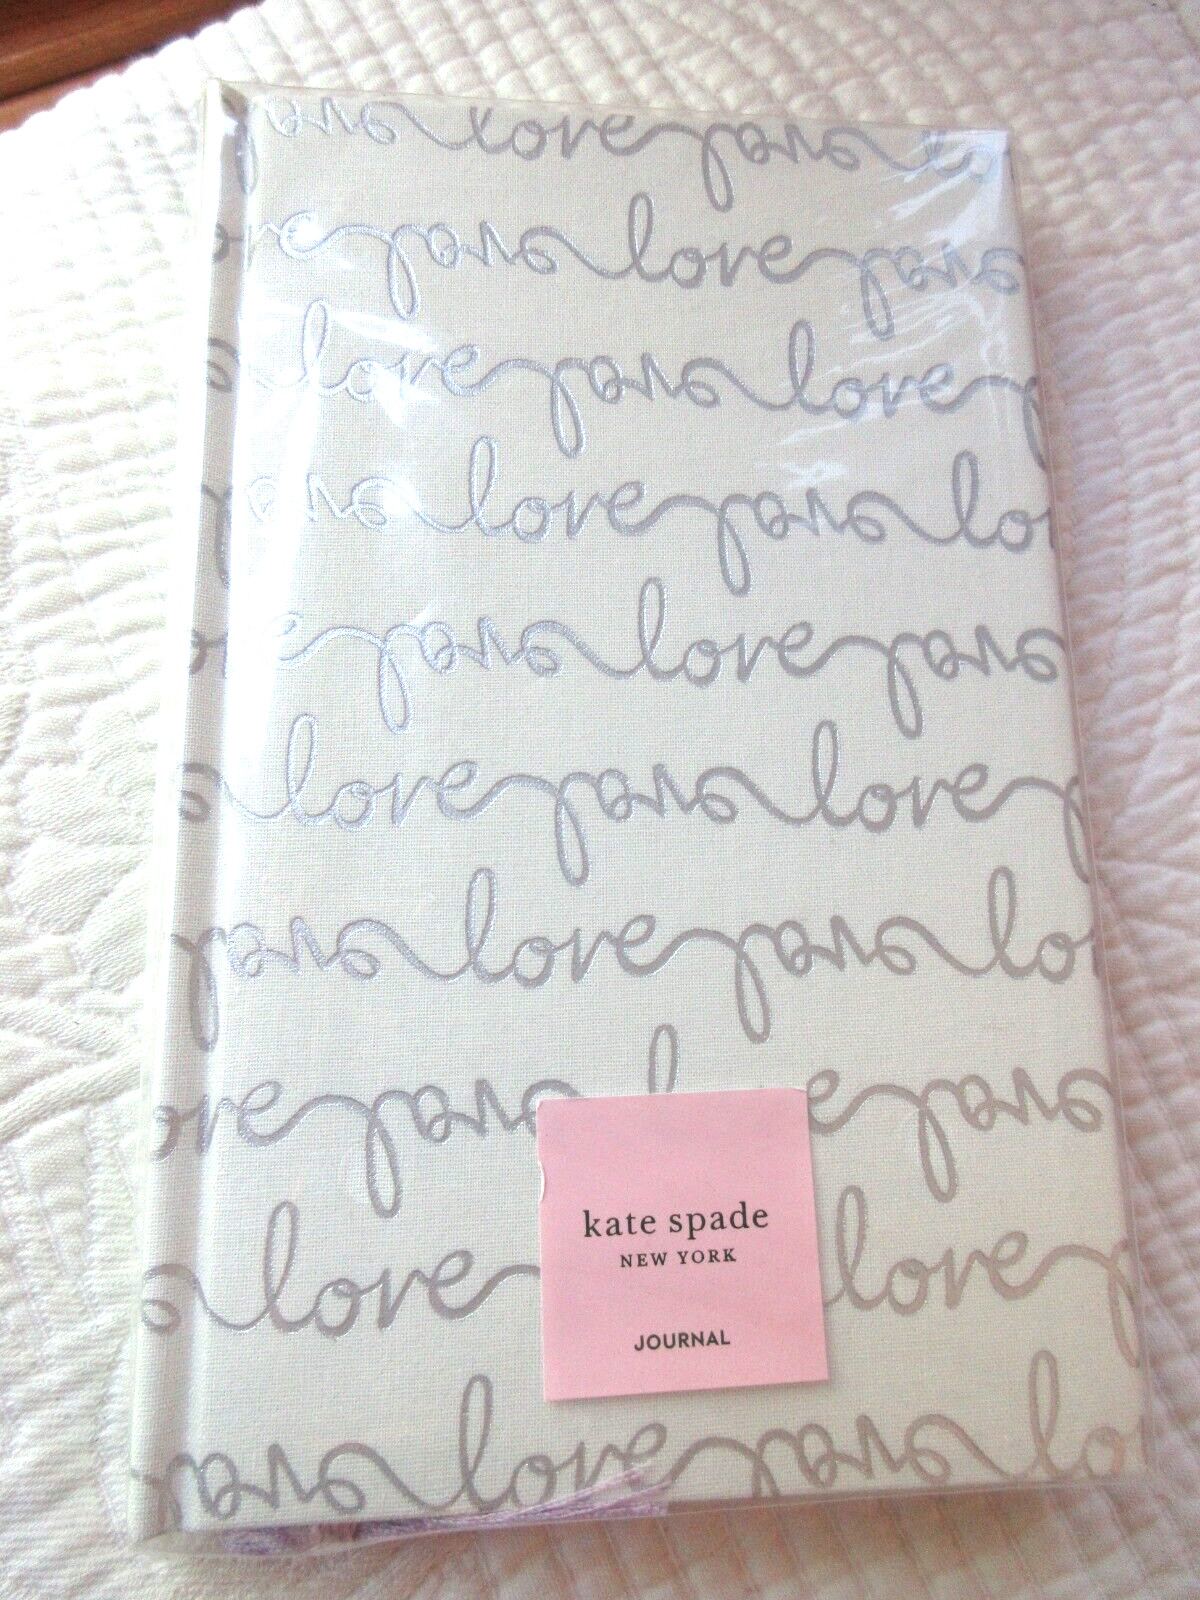 ove love love lo
e love love love
e love love love
ove love love lo
e love love love
e love love love
love love love lo
ove love l e love
e love love
love love love lo
kate spade
NEW YORK
JOURNAL